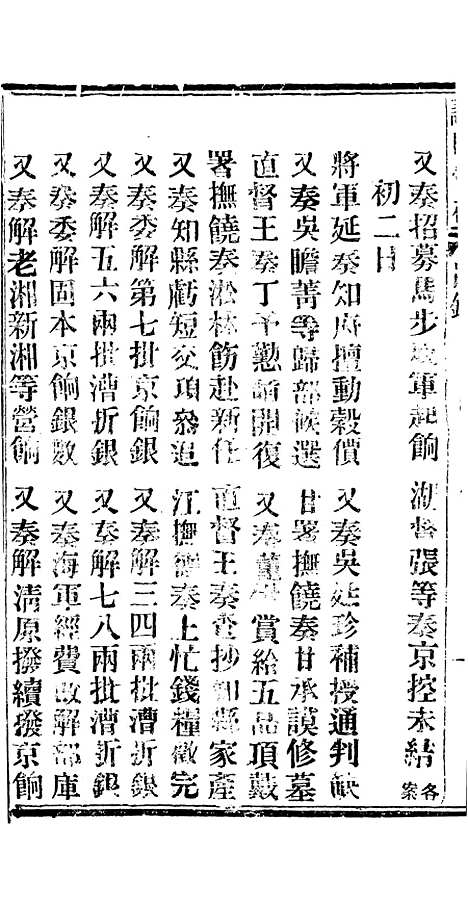 又奏招募馬步 軍起餉　湖督張等奏京控未結各案
初二日
將軍延奏知府擅動穀價　又奏吳廷珍補授通判缺
又奏吳瞻菁等歸部候選　甘署撫饒奏甘承謨修墓
直督王奏丁予懃 開復　又奏 賞給五品頂戴
署撫饒奏淞林飭赴新任　直督王奏查抄知縣家產
又奏知縣虧短交項參追　江撫 奏上忙錢糧徵完
又奏委解第七批京餉銀　又奏解三四兩批漕折銀
又奏解五六兩批漕折銀　又奏解七八兩批漕折銀
又奏委解固本京餉銀數　又奏海軍經費改解部庫
又奏解老湘新湘等營餉　又奏解清原撥續撥京餉